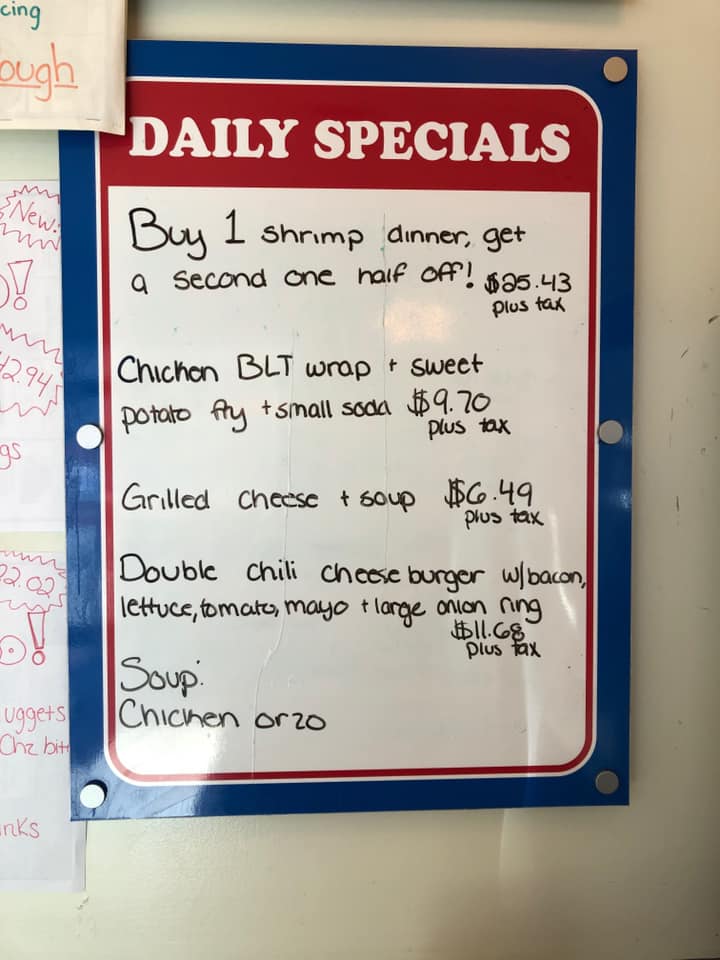 cing
ough
DAILY SPECIALS
Buy 1 shrimp dinner, get
a second one half off! $25.43
plus tax
Chicken BLT wrap + sweet
potato fry + small soda $9.70
plus tax
Grilled cheese + soup $6.49
plus tax
Double chili cheese burger w/bacon,
lettuce, tomato, mayo + large onion ring
$11.68
plus tax
Soup:
Chicken orzo
New!
!
2.94
gs
2.02
!
uggets
Chz bit
inks